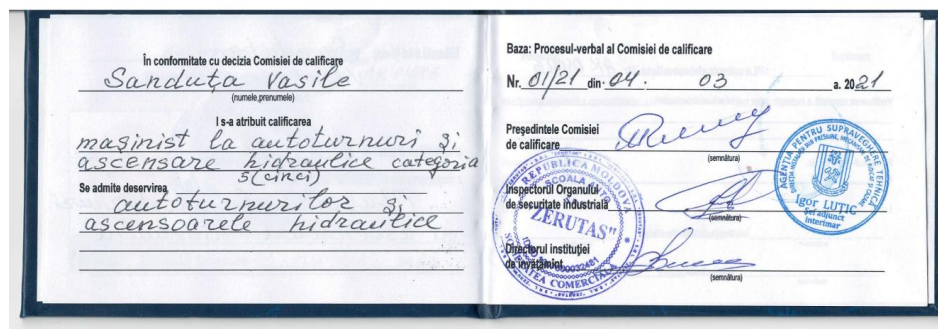 În conformitate cu decizia Comisiei de calificare
Sanduța Vasile
(numele,prenumele)
I s-a atribuit calificarea
mașinist la autoturnuri și
ascensare hidraulice categoria
5(cinci)
Se admite deservirea
autoturnurilor și
ascensoarele hidraulice
Baza: Procesul-verbal al Comisiei de calificare
Nr. 01/21 din 04. 03 a. 2021
Președintele Comisiei
de calificare
(semnătura)
Inspectorul Organului
de securitate industrială
(semnătura)
Directorul instituției
de învățămînt
(semnătura)
REPUBLICA MOLDOVA
ȘCOALA
"ZERUTAS"
COMERCIALĂ
AGENȚIA PENTRU SUPRAVEGHERE TEHNICĂ
Igor LUTIC
Șef adjunct
interimar